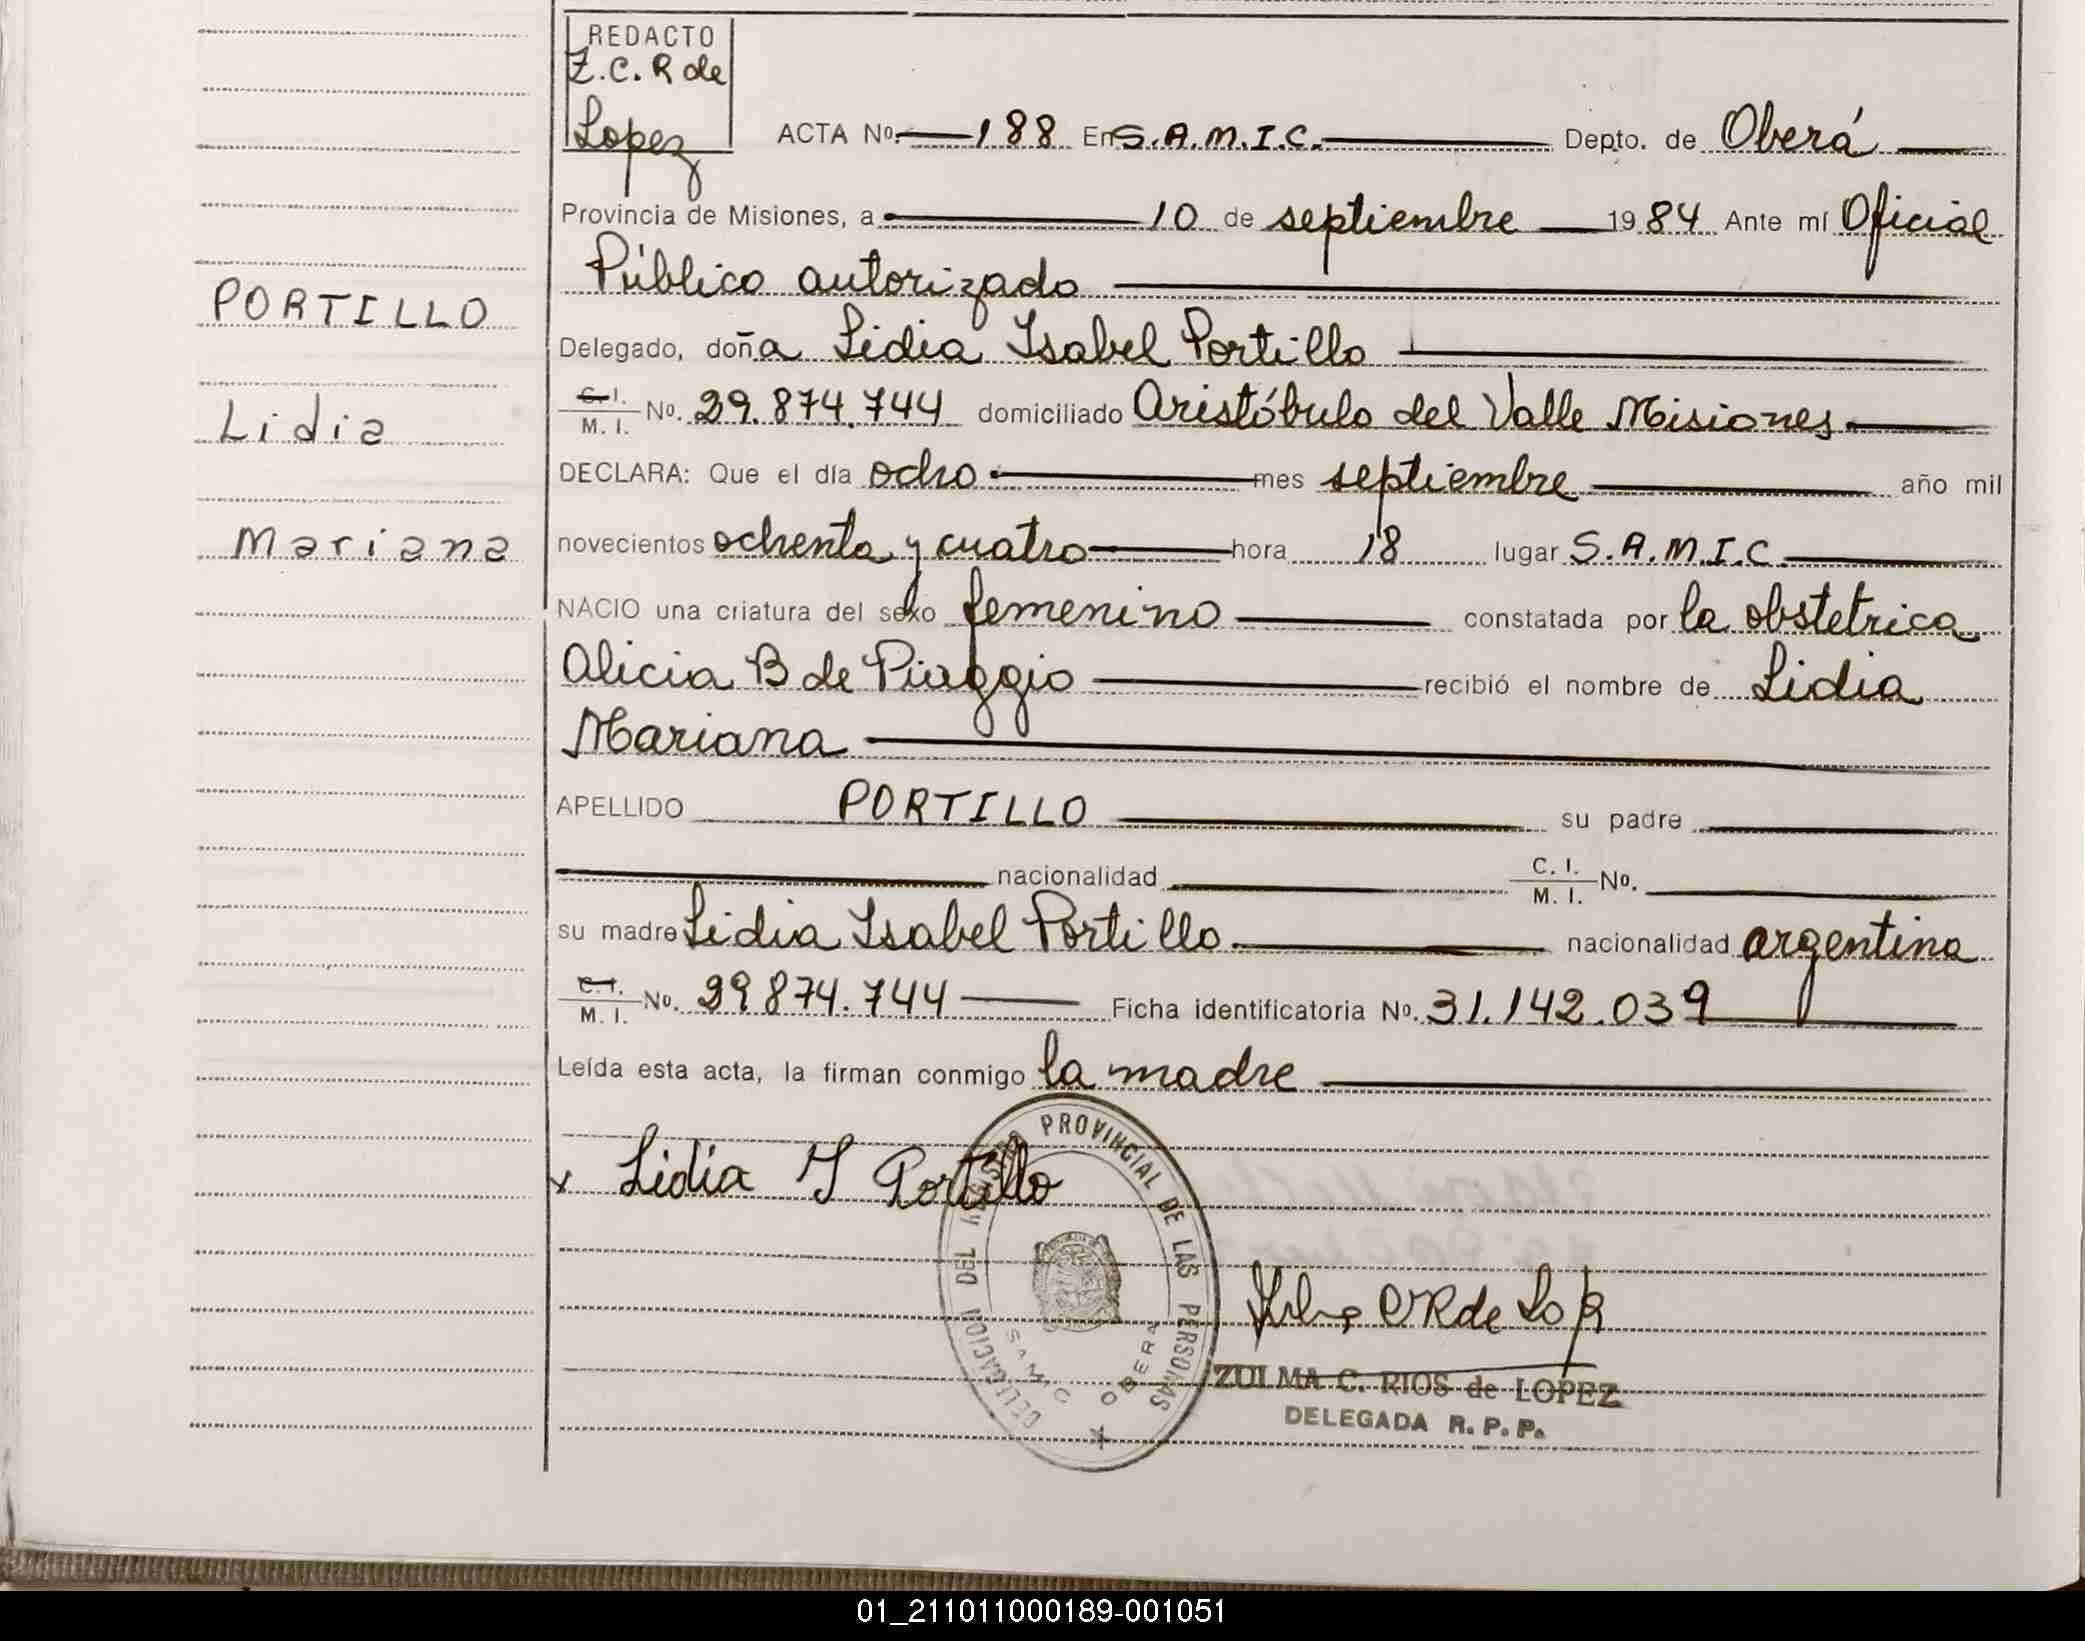 REDACTO
Z.C.R de
Lopez
ACTA Nº. 188 En S.A.M.I.C. Depto. de Oberá
Provincia de Misiones, a 10 de septiembre 1984 Ante mí Oficial
Público autorizado
PORTILLO
Delegado, doña Lidia Isabel Portillo
C. I.
M. I. Nº. 29.874.744 domiciliado Aristóbulo del Valle Misiones
Lidia
DECLARA: Que el día ocho mes septiembre año mil
Mariana
novecientos ochenta y cuatro hora 18 lugar S.A.M.I.C
NACIO una criatura del sexo femenino constatada por la obstetrica
Alicia B de Piaggio recibió el nombre de Lidia
Mariana
APELLIDO PORTILLO su padre
nacionalidad C. I.
M. I. Nº.
su madre Lidia Isabel Portillo nacionalidad argentina
C. I.
M. I. Nº. 29.874.744 Ficha identificatoria Nº. 31.142.039
Leída esta acta, la firman conmigo la madre
x Lidia I Portillo
DELEGACION DEL REGISTRO PROVINCIAL DE LAS PERSONAS
S.A.M.I.C OBERA
ZULMA C. RIOS de LOPEZ
DELEGADA R. P. P.
01_211011000189-001051